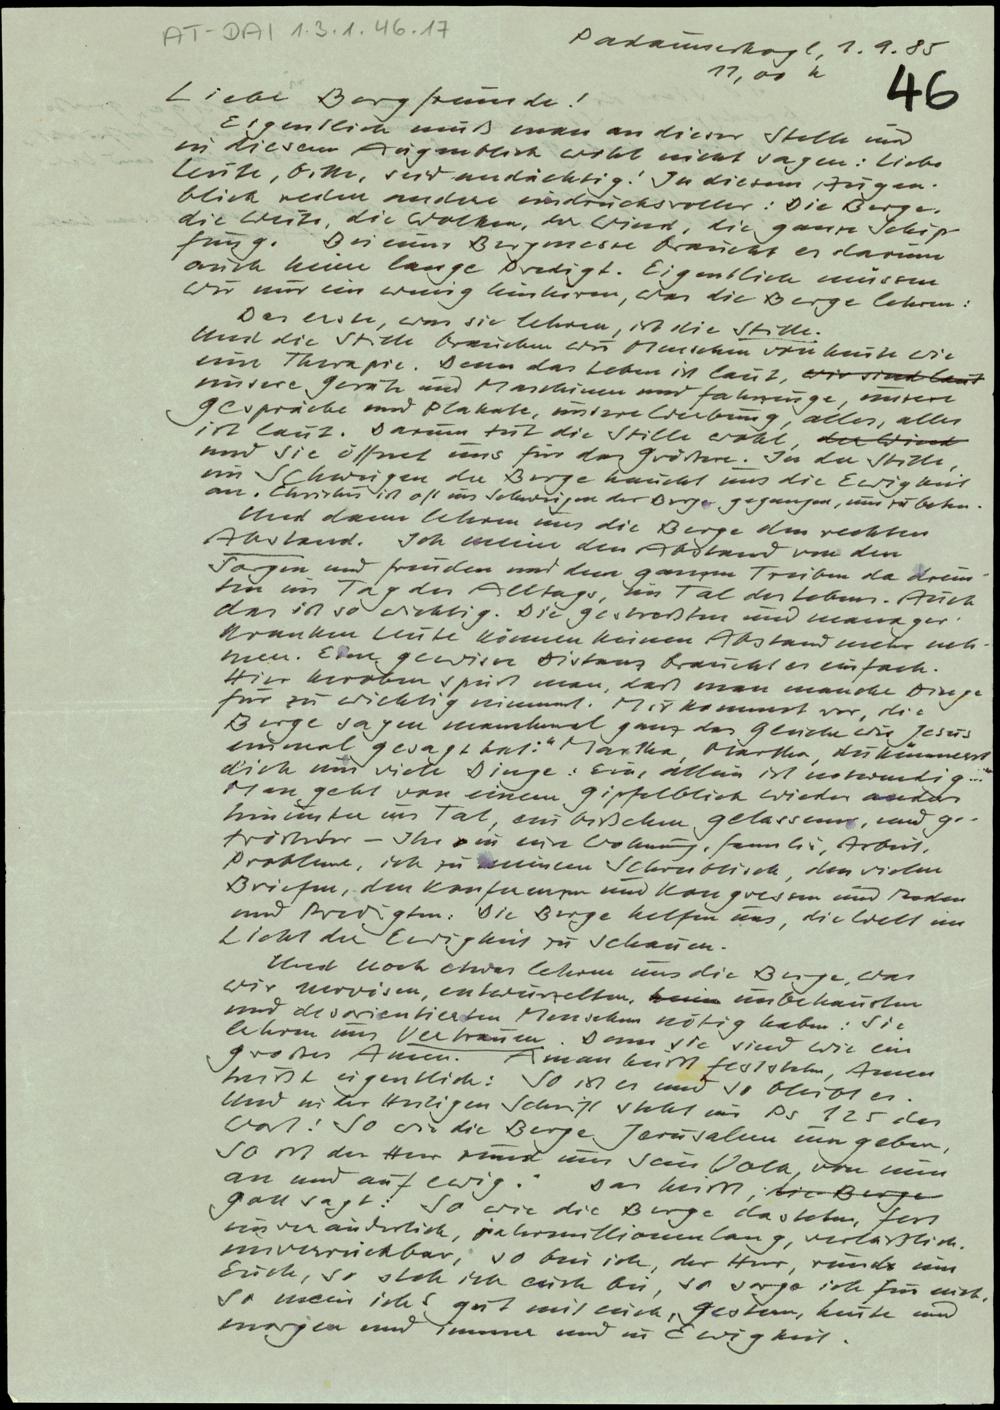 AT-DAI 1.3.1.46.17
Padaunerkogl, 1.9.85
11,00 h
46
Liebe Bergfreunde!
Eigentlich muß man an dieser Stelle und
in diesem Augenblick wohl nicht sagen: Liebe
Leute, bitte, seid andächtig! In diesem Augen-
blick reden andere eindrucksvoller: Die Berge,
die Weite, die Wolken, der Wind, die ganze Schöp
fung. Bei einer Bergmesse braucht es darum
auch keine lange Predigt. Eigentlich müssen
wir nur ein wenig hinhören, was die Berge lehren:
Das erste, was sie lehren, ist die Stille.
Und die Stille brauchen wir Menschen von heute wie
eine Therapie. Denn das Leben ist laut, wir sind laut
unsere Geräte und Maschinen und Fahrzeuge, unsere
Gespräche und Plakate, unsere Werbung, alles, alles
ist laut. Darum tut die Stille wohl, der Wind
und sie öffnet uns für das Größere. In der Stille,
im Schweigen der Berge haucht uns die Ewigkeit
an. Christus ist oft ins Schweigen der Berge gegangen, um zu beten.
Und dann lehren uns die Berge den rechten
Abstand. Ich meine den Abstand von den
Sorgen und Freuden und dem ganzen Treiben da drun-
ten im Tag des Alltags, im Tal des Lebens. Auch
das ist so wichtig. Die gestreßten und manager-
kranken Leute können keinen Abstand mehr neh-
men. Eine gewisse Distanz braucht es einfach.
Hier heroben spürt man, daß man manche Dinge
für zu wichtig nimmt. Mir kommt vor, die
Berge sagen manchmal ganz das Gleiche wie Jesus
einmal gesagt hat: "Martha, Martha, du kümmerst
dich um viele Dinge: Eins allein ist notwendig..."
Man geht von einem Gipfelblick wieder anders
hinunter ins Tal, ein bißchen gelassener, und ge-
trösteter – Ihr in eure Wohnung, Familie, Arbeit,
Probleme, ich zu meinem Schreibtisch, den vielen
Briefen, den Konferenzen und Kongressen und Reden
und Predigten: Die Berge helfen uns, die Welt im
Licht der Ewigkeit zu schauen.
Und noch etwas lehren uns die Berge, was
wir nervösen, entwurzelten, unbehausten
und desorientierten Menschen nötig haben: Sie
lehren uns Vertrauen. Denn sie sind wie ein
großes Amen. Aman heißt feststehn, Amen
heißt eigentlich: So ist es und so bleibt es.
Und in der Heiligen Schrift steht im Ps 125 das
Wort: So wie die Berge Jerusalem umgeben,
so ist der Herr rund um sein Volk, von nun
an und auf ewig." Das heißt, die Berge
Gott sagt: So wie die Berge dastehn, fest
unveränderlich, jahrmillionenlang, verläßlich,
unverrückbar, so bin ich, der Herr, rund um
Euch, so steh ich euch bei, so sorge ich für euch,
so mein ich's gut mit euch, gestern, heute und
morgen und immer und in Ewigkeit.